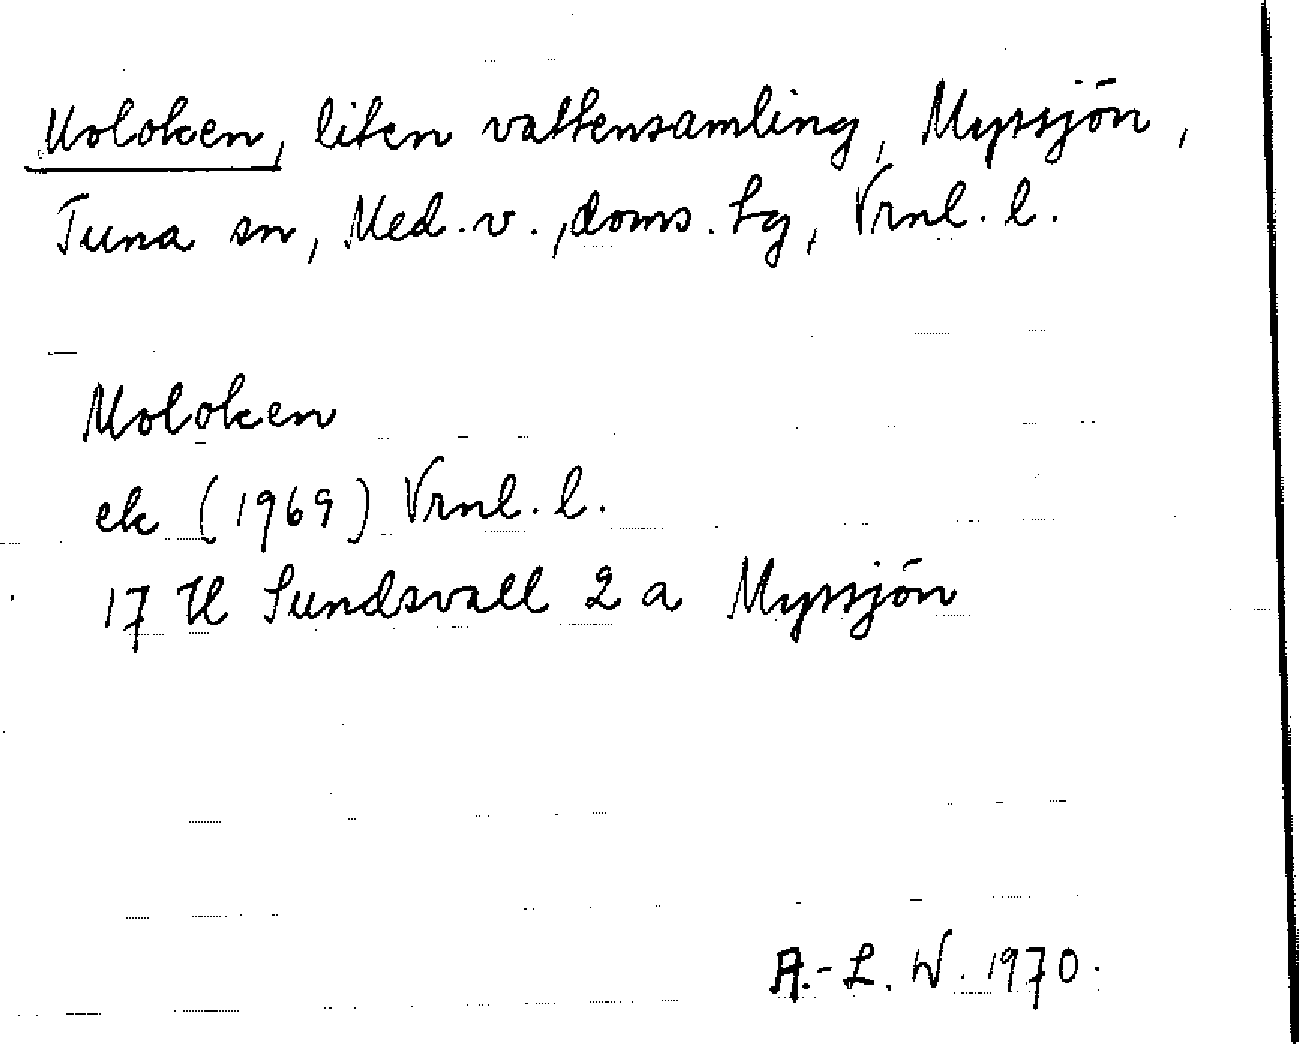 Moloken, liten vattensamling, Myssjön,
Tuna sn, Med. v., doms. hg, Vrnl. l.
Moloken
ek (1969) Vrnl. l.
17 H Sundsvall 2 a Myssjön
A.-L. W. 1970.